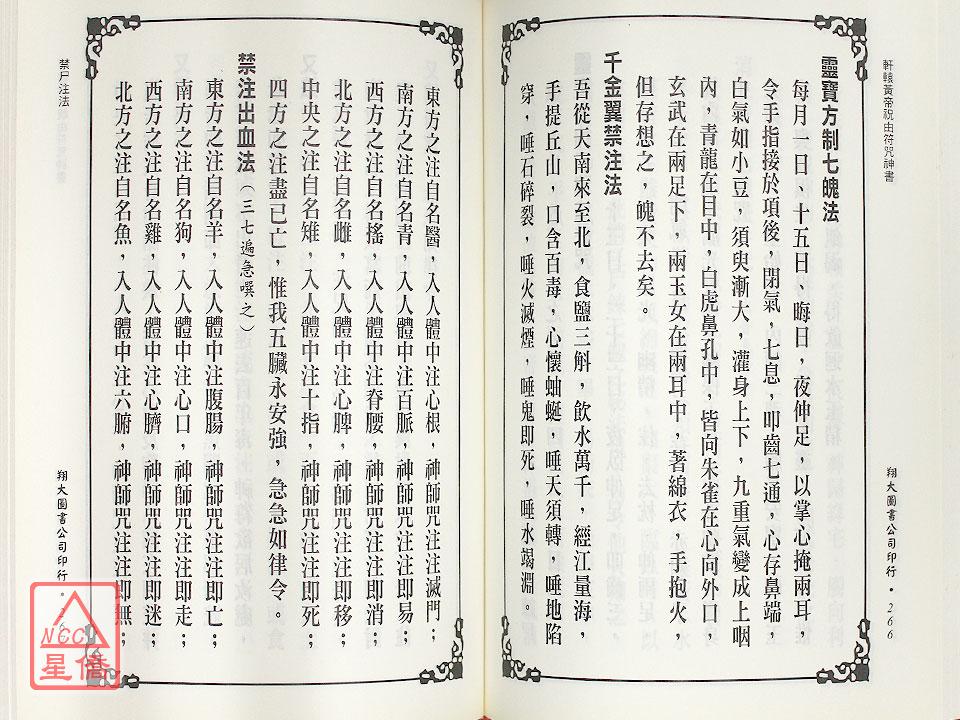 軒轅黃帝祝由符咒神書
靈寶方制七魄法
每月一日、十五日、晦日，夜伸足，以掌心掩兩耳，
令手指接於項後，閉氣，七息，叩齒七通，心存鼻端，
白氣如小豆，須臾漸大，灌身上下，九重氣變成上咽
內，青龍在目中，白虎鼻孔中，皆向朱雀在心向外口，
玄武在兩足下，兩玉女在兩耳中，著綿衣，手抱火，
但存想之，魄不去矣。
千金翼禁注法
吾從天南來至北，食鹽三斛，飲水萬千，經江量海，
手提丘山，口含百毒，心懷蚰蜒，唾天須轉，唾地陷
穿，唾石碎裂，唾火滅煙，唾鬼即死，唾水竭淵。
翔大圖書公司印行・266
東方之注自名醫，入人體中注心根，神師咒注注滅門；
南方之注自名青，入人體中注百脈，神師咒注注即易；
西方之注自名搖，入人體中注脊腰，神師咒注注即消；
北方之注自名雌，入人體中注心脾，神師咒注注即移；
中央之注自名雉，入人體中注十指，神師咒注注即死；
四方之注盡已亡，惟我五臟永安強，急急如律令。
禁注出血法（三七遍急噀之）
東方之注自名羊，入人體中注腹腸，神師咒注注即亡；
南方之注自名狗，入人體中注心口，神師咒注注即走；
西方之注自名雞，入人體中注心臍，神師咒注注即迷；
北方之注自名魚，入人體中注六腑，神師咒注注即無；
禁尸注法
翔大圖書公司印行・26
NCC
星僑